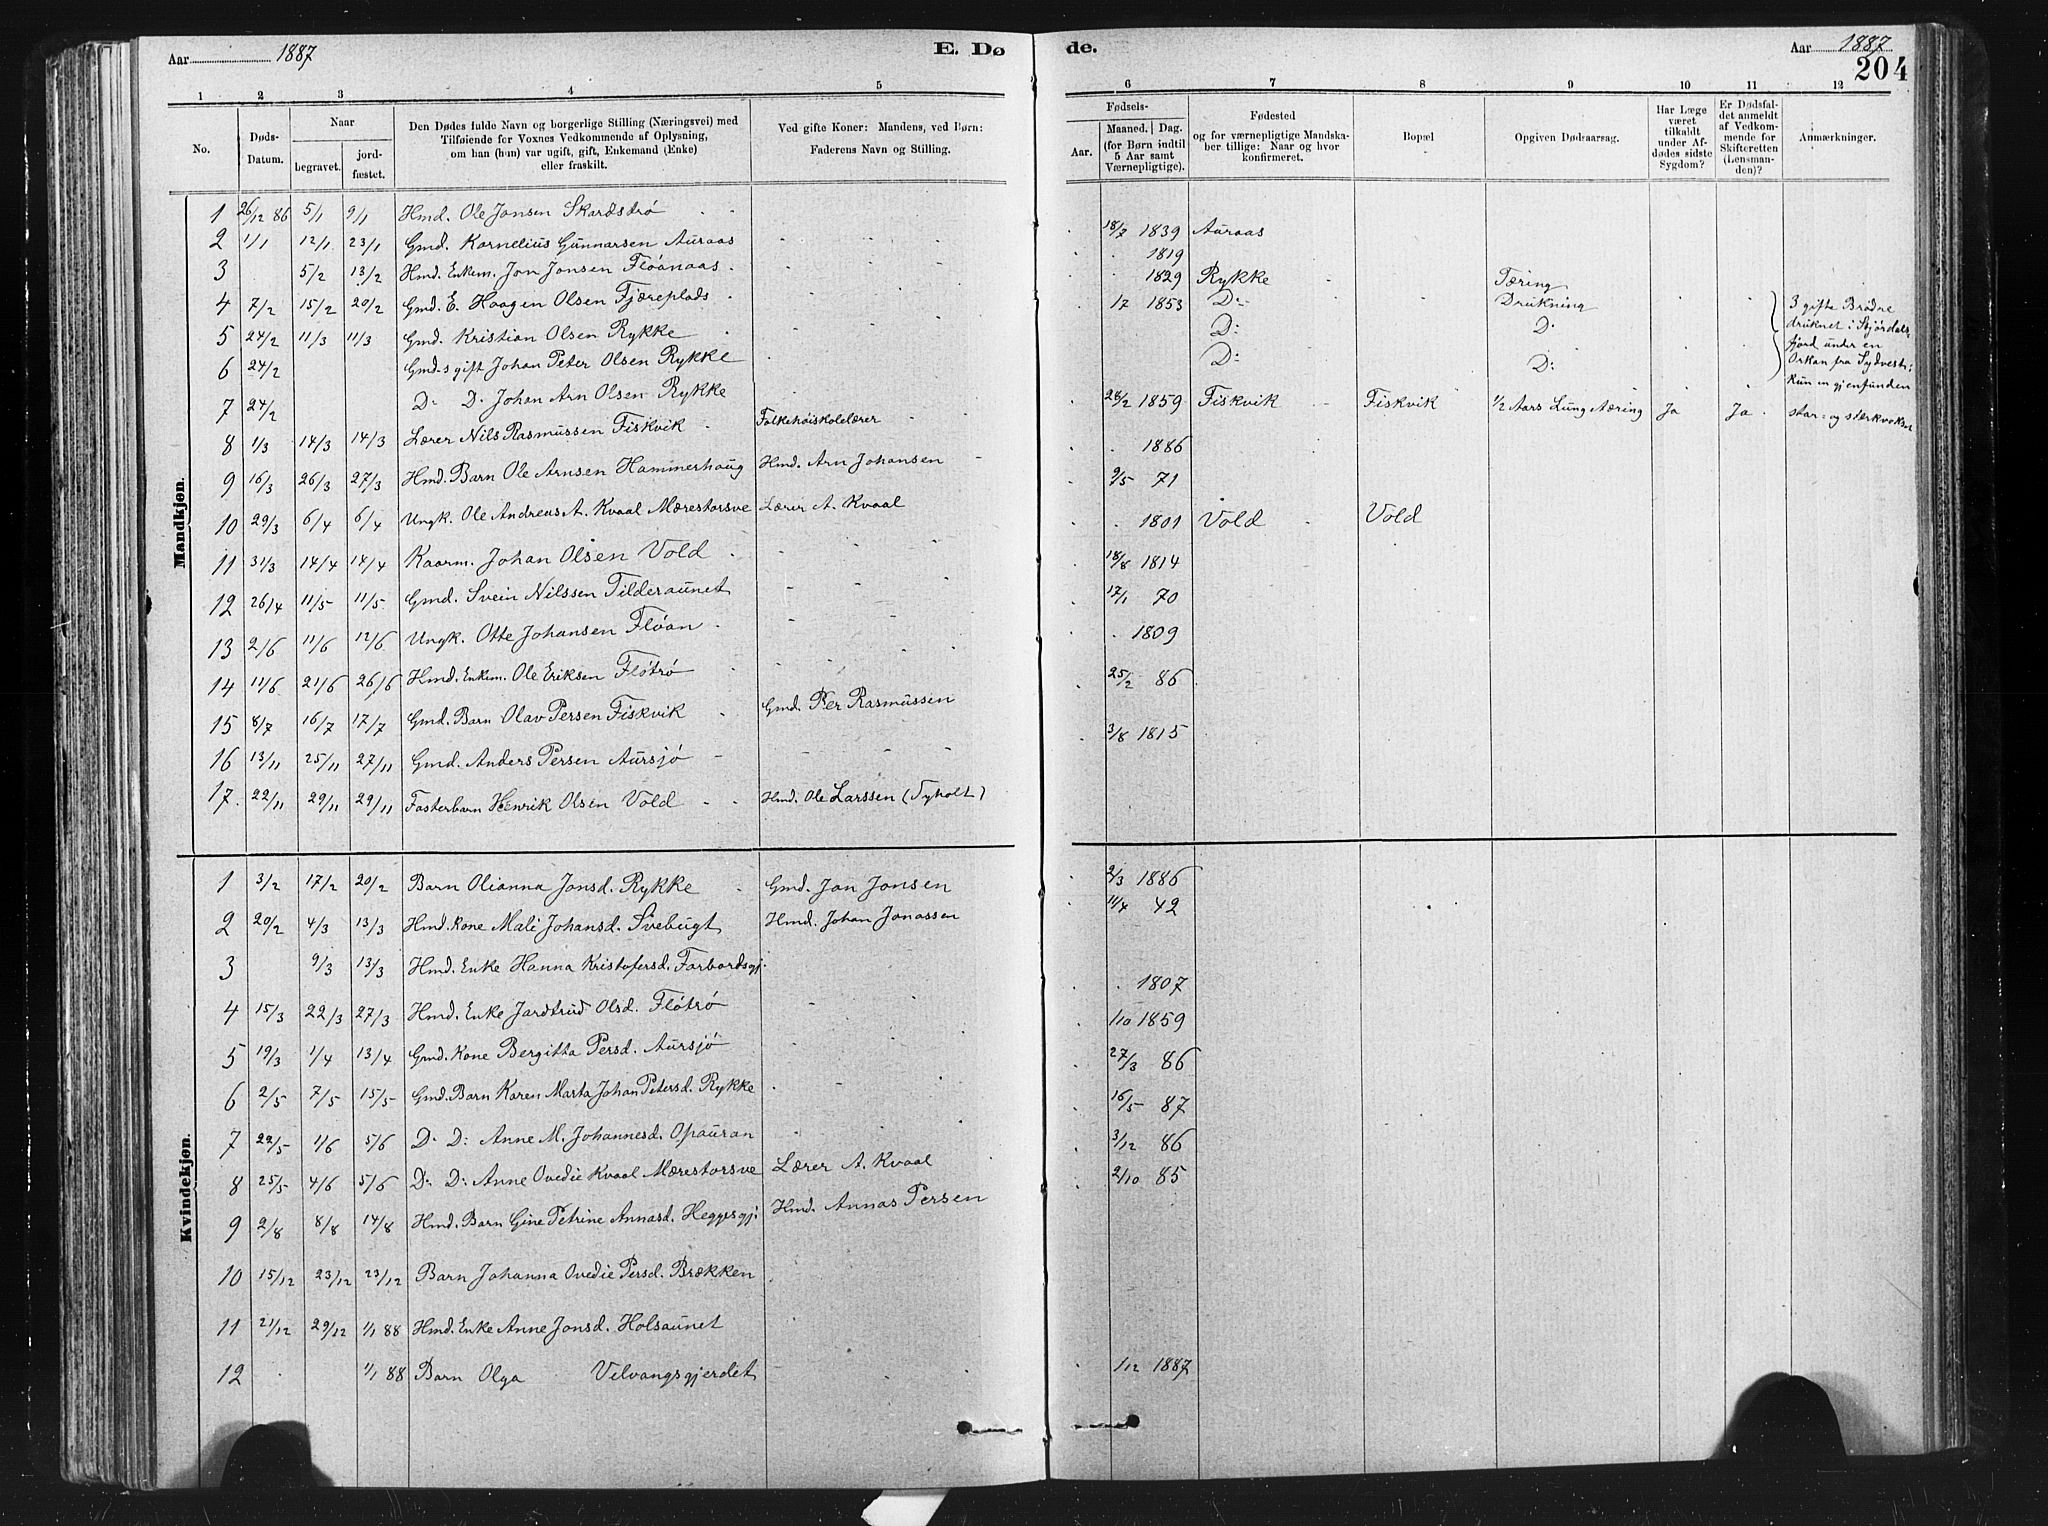 Aar 1887 E. Dø
de. Aar 1887
204
1 2 3 4 5
6 7 8 9 10 11 12
No. Døds-Datum. Naar begravet. jordfæstet. Den Dødes fulde Navn og borgerlige Stilling (Næringsvei) med Tilføiende for Voxnes Vedkommende af Oplysning, om han (hun) var ugift, gift, Enkemand (Enke) eller fraskilt. Ved gifte Koner: Mandens, ved Børn: Faderens Navn og Stilling.
Aar. Fødsels- Maaned. Dag. (for Børn indtil 5 Aar samt Værnepligtige). Fødested og for værnepligtige Mandskaber tillige: Naar og hvor konfirmeret. Bopæl Opgiven Dødsaarsag. Har Læge været tilkaldt under Afdødes sidste Sygdom? Er Dødsfaldet anmeldt af Vedkommende for Skifteretten (Lensmanden)? Anmærkninger.
Mandkjøn.
1 26/12 86 5/1 9/1 Hmd. Ole Jonsen Skardstrø
2 1/1 12/1 23/1 Gmd. Kornelius Gunnarsen Auraas
3 5/2 13/2 Hmd. Enkem. Jon Jonsen Fløanaas
4 7/2 15/2 20/2 Gmd. E. Haagen Olsen Fjæreplads
5 24/2 11/3 11/3 Gmd. Kristian Olsen Rykke
6 24/2 Gmd-s gift Johan Peter Olsen Rykke
7 24/2 D: D: Johan Arn Olsen Rykke
8 1/3 14/3 14/3 Lærer Nils Rasmussen Fiskvik Folkehøiskolelærer
9 16/3 26/3 27/3 Hmd. Barn Ole Arnsen Hammerhaug Hmd. Arn Johansen
10 29/3 6/4 6/4 Ungk. Ole Andreas A. Kvaal Mærestorsve Lærer A. Kvaal
11 31/3 14/4 14/4 Kaarm. Johan Olsen Vold
12 26/4 11/5 11/5 Gmd. Svein Nilssen Tilderaunet
13 2/6 11/6 12/6 Ungk. Otte Johansen Fløan
14 11/6 21/6 26/6 Hmd. Enkem. Ole Eriksen Fløtrø
15 8/7 16/7 17/7 Gmd. Barn Olav Persen Fiskvik Gmd. Per Rasmussen
16 13/11 25/11 27/11 Gmd. Anders Persen Aursjø
17. 22/11 29/11 29/11 Fosterbarn Henrik Olsen Vold Hmd. Ole Larssen (Tyholt)
18/7 1839 Auraas
1819
1829 Rykke Tæring
17 1853 D: Drukning
D: D:
D: D:
3 gifte Brødre druknet i Stjørdals fjord under en Orkan fra Sydvest; Kun en gjenfunden
28/2 1859 Fiskvik Fiskvik 1/2 Aars Lungetæring Ja Ja stor- og stærkvoksen
1886
9/5 71
1801 Vold Vold
18/8 1814
17/1 70
1809
25/2 86
3/8 1815
Kvindekjøn.
1 3/2 17/2 20/2 Barn Olianna Jonsd. Rykke Gmd. Jon Jonsen
2 20/2 4/3 13/3 Hmd. Kone Mali Johansd. Svebugt Hmd. Johan Jonassen
3 9/3 13/3 Hmd. Enke Hanna Kristofersd. Forbordsgj.
4 15/3 22/3 27/3 Hmd. Enke Jardtrud Olsd. Fløtrø
5 19/3 1/4 13/4 Gmd. Kone Bergitta Persd. Aursjø
6 2/5 7/5 15/5 Gmd. Barn Karen Marta Johan Petersd. Rykke
7 22/5 1/6 5/6 D: D: Anne M. Johannesd. Opauran
8 25/5 4/6 5/6 D: D: Anne Ovedie Kvaal Mærestorsve Lærer A. Kvaal
9 2/8 8/8 14/8 Hmd. Barn Gine Petrine Annasd. Heggesgj: Hmd. Annas Persen
10 15/12 23/12 23/12 Barn Johanna Ovedie Persd. Brækken
11 21/12 29/12 1/1 88 Hmd. Enke Anne Jonsd. Holsaunet
12 1/1 88 Barn Olga Velvangsgjerdet
2/3 1886
11/4 42
1807
1/10 1859
27/3 86
16/5 87
3/12 86
2/10 85
1/12 1887